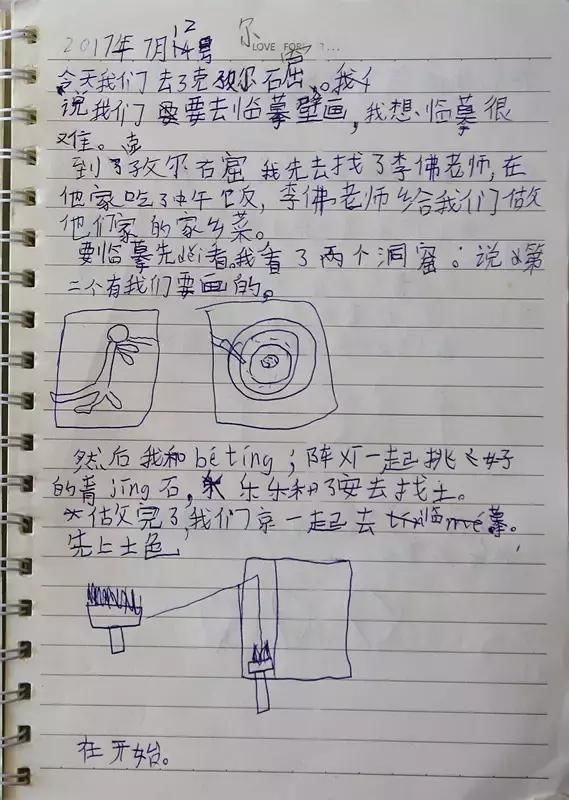 2017年7月12号
尔
LOVE FOR
今天我们去了克孜尔石窟。我
说我们要去临摹壁画,我想临摹很
难。
到了孜尔石窟我先去找了李佛老师,在
他家吃了中午饭,李佛老师给我们做
他们家的家乡菜。
要临摹先看。我看了两个洞窟。说第
二个有我们要画的。
然后我和bé ting;阵灯一起挑好
的青jīng石,乐乐和了安去找土。
做完了,我们一起去临摹。
先上土色
在开始。